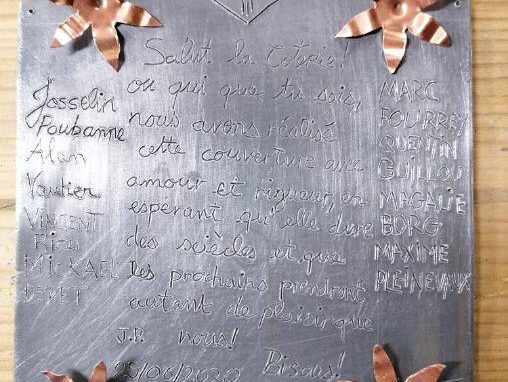 Salut la Coterie!
ou qui que tu sois,
nous avons réalisé
cette couverture avec
amour et rigueur, en
esperant qu'elle dure
des siècles et que
les prochains prendront
autant de plaisir que
nous!
Bisous!
J.P.
25/06/2020
Josselin
Poubanne
Alan
Vautier
VINCENT
RIOU
MICKAEL
BERET
MARC
FOURREY
QUENTIN
GUILLOU
MAGALIE
BORG
MAXIME
PLEINEVAUX